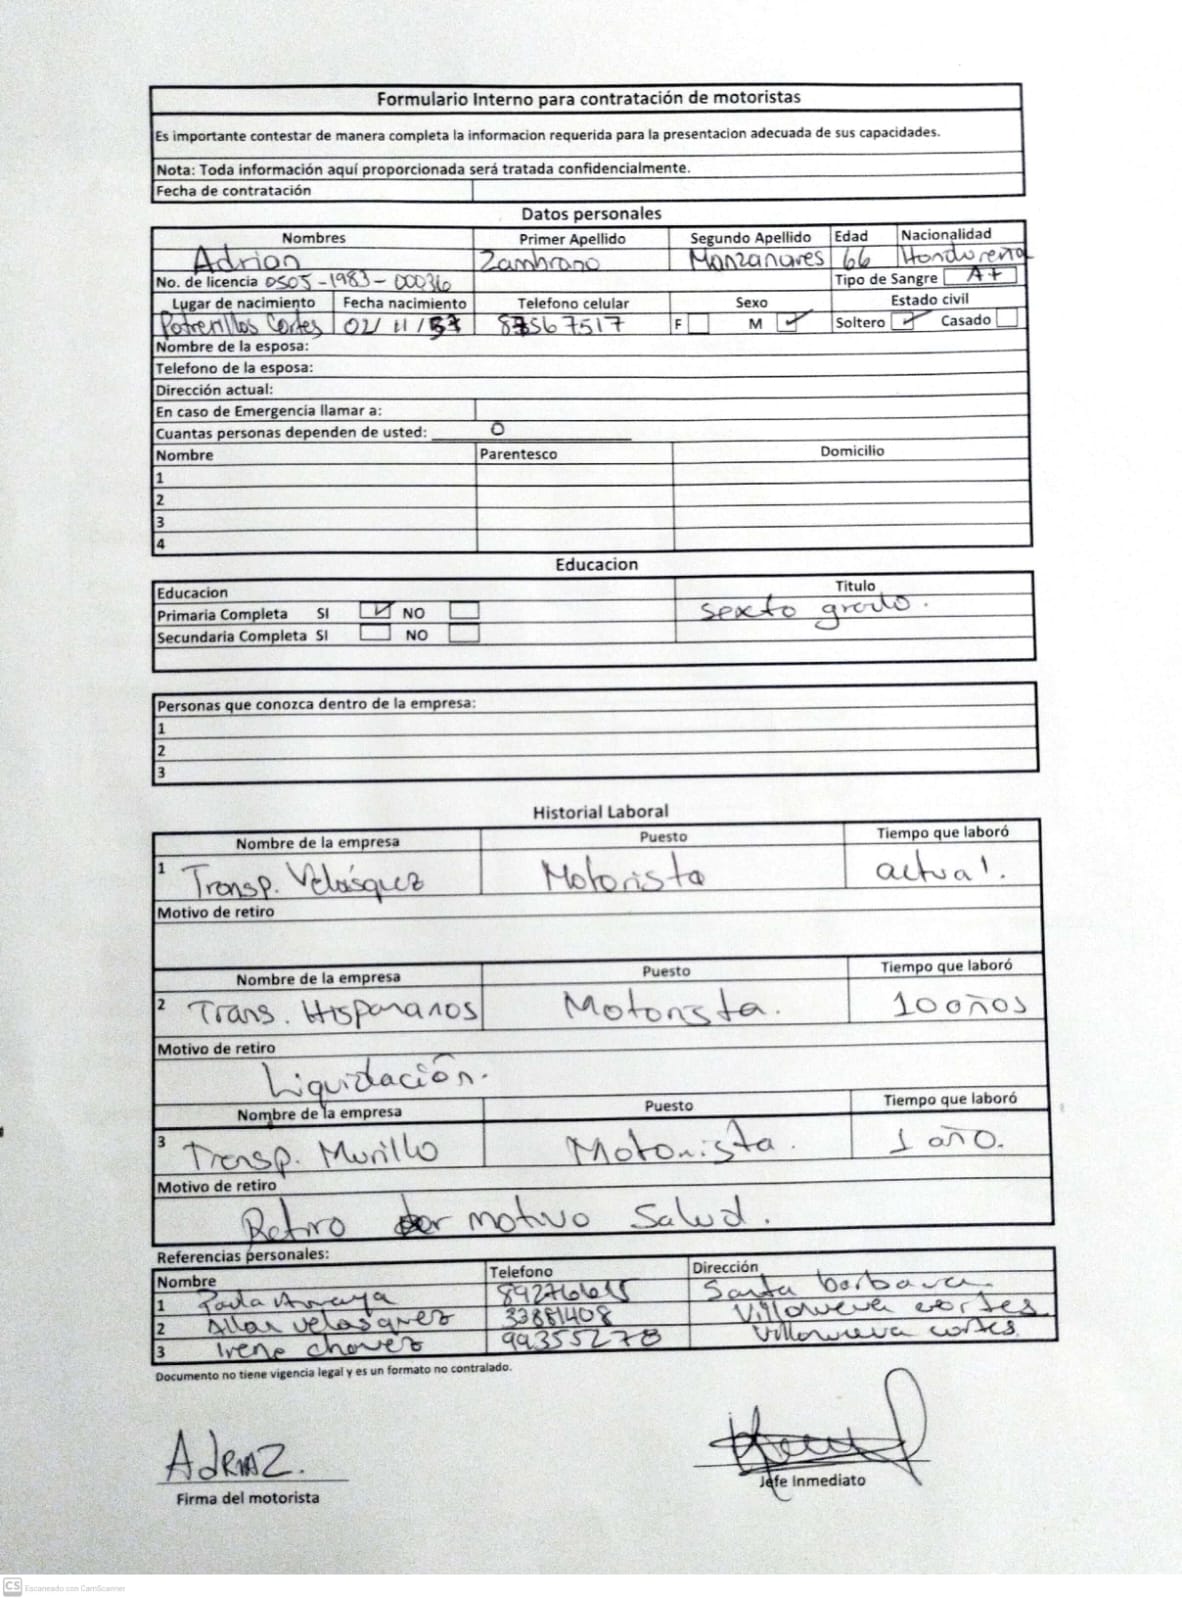 Formulario Interno para contratación de motoristas
Es importante contestar de manera completa la informacion requerida para la presentacion adecuada de sus capacidades.
Nota: Toda información aquí proporcionada será tratada confidencialmente.
Fecha de contratación
Datos personales
Nombres Primer Apellido Segundo Apellido Edad Nacionalidad
Adrian Zambrano Manzanares 66 Hondureña
No. de licencia 0505-1983-00036 Tipo de Sangre A+
Lugar de nacimiento Fecha nacimiento Telefono celular Sexo Estado civil
Potrerillos Cortes 02/11/57 87567517 F M Soltero Casado
Nombre de la esposa:
Telefono de la esposa:
Dirección actual:
En caso de Emergencia llamar a:
Cuantas personas dependen de usted: 0
Nombre Parentesco Domicilio
1
2
3
4
Educacion
Educacion Titulo
Primaria Completa SI NO sexto grado.
Secundaria Completa SI NO
Personas que conozca dentro de la empresa:
1
2
3
Historial Laboral
Nombre de la empresa Puesto Tiempo que laboró
1 Transp. Velásquez Motorista actual.
Motivo de retiro
Nombre de la empresa Puesto Tiempo que laboró
2 Trans. Hispananos Motorista. 10 años
Motivo de retiro
Liquidación.
Nombre de la empresa Puesto Tiempo que laboró
3 Transp. Murillo Motorista. 1 año.
Motivo de retiro
Retiro por motivo Salud.
Referencias personales:
Nombre Telefono Dirección
1 Paola Amaya Santa barbara.
2 Allan velasquez 33881408 Villanueva cortes
3 Irene chavez 99355278 Villanueva cortes
Documento no tiene vigencia legal y es un formato no contralado.
AdriaZ.
Firma del motorista Jefe Inmediato
CS Escaneado con CamScanner